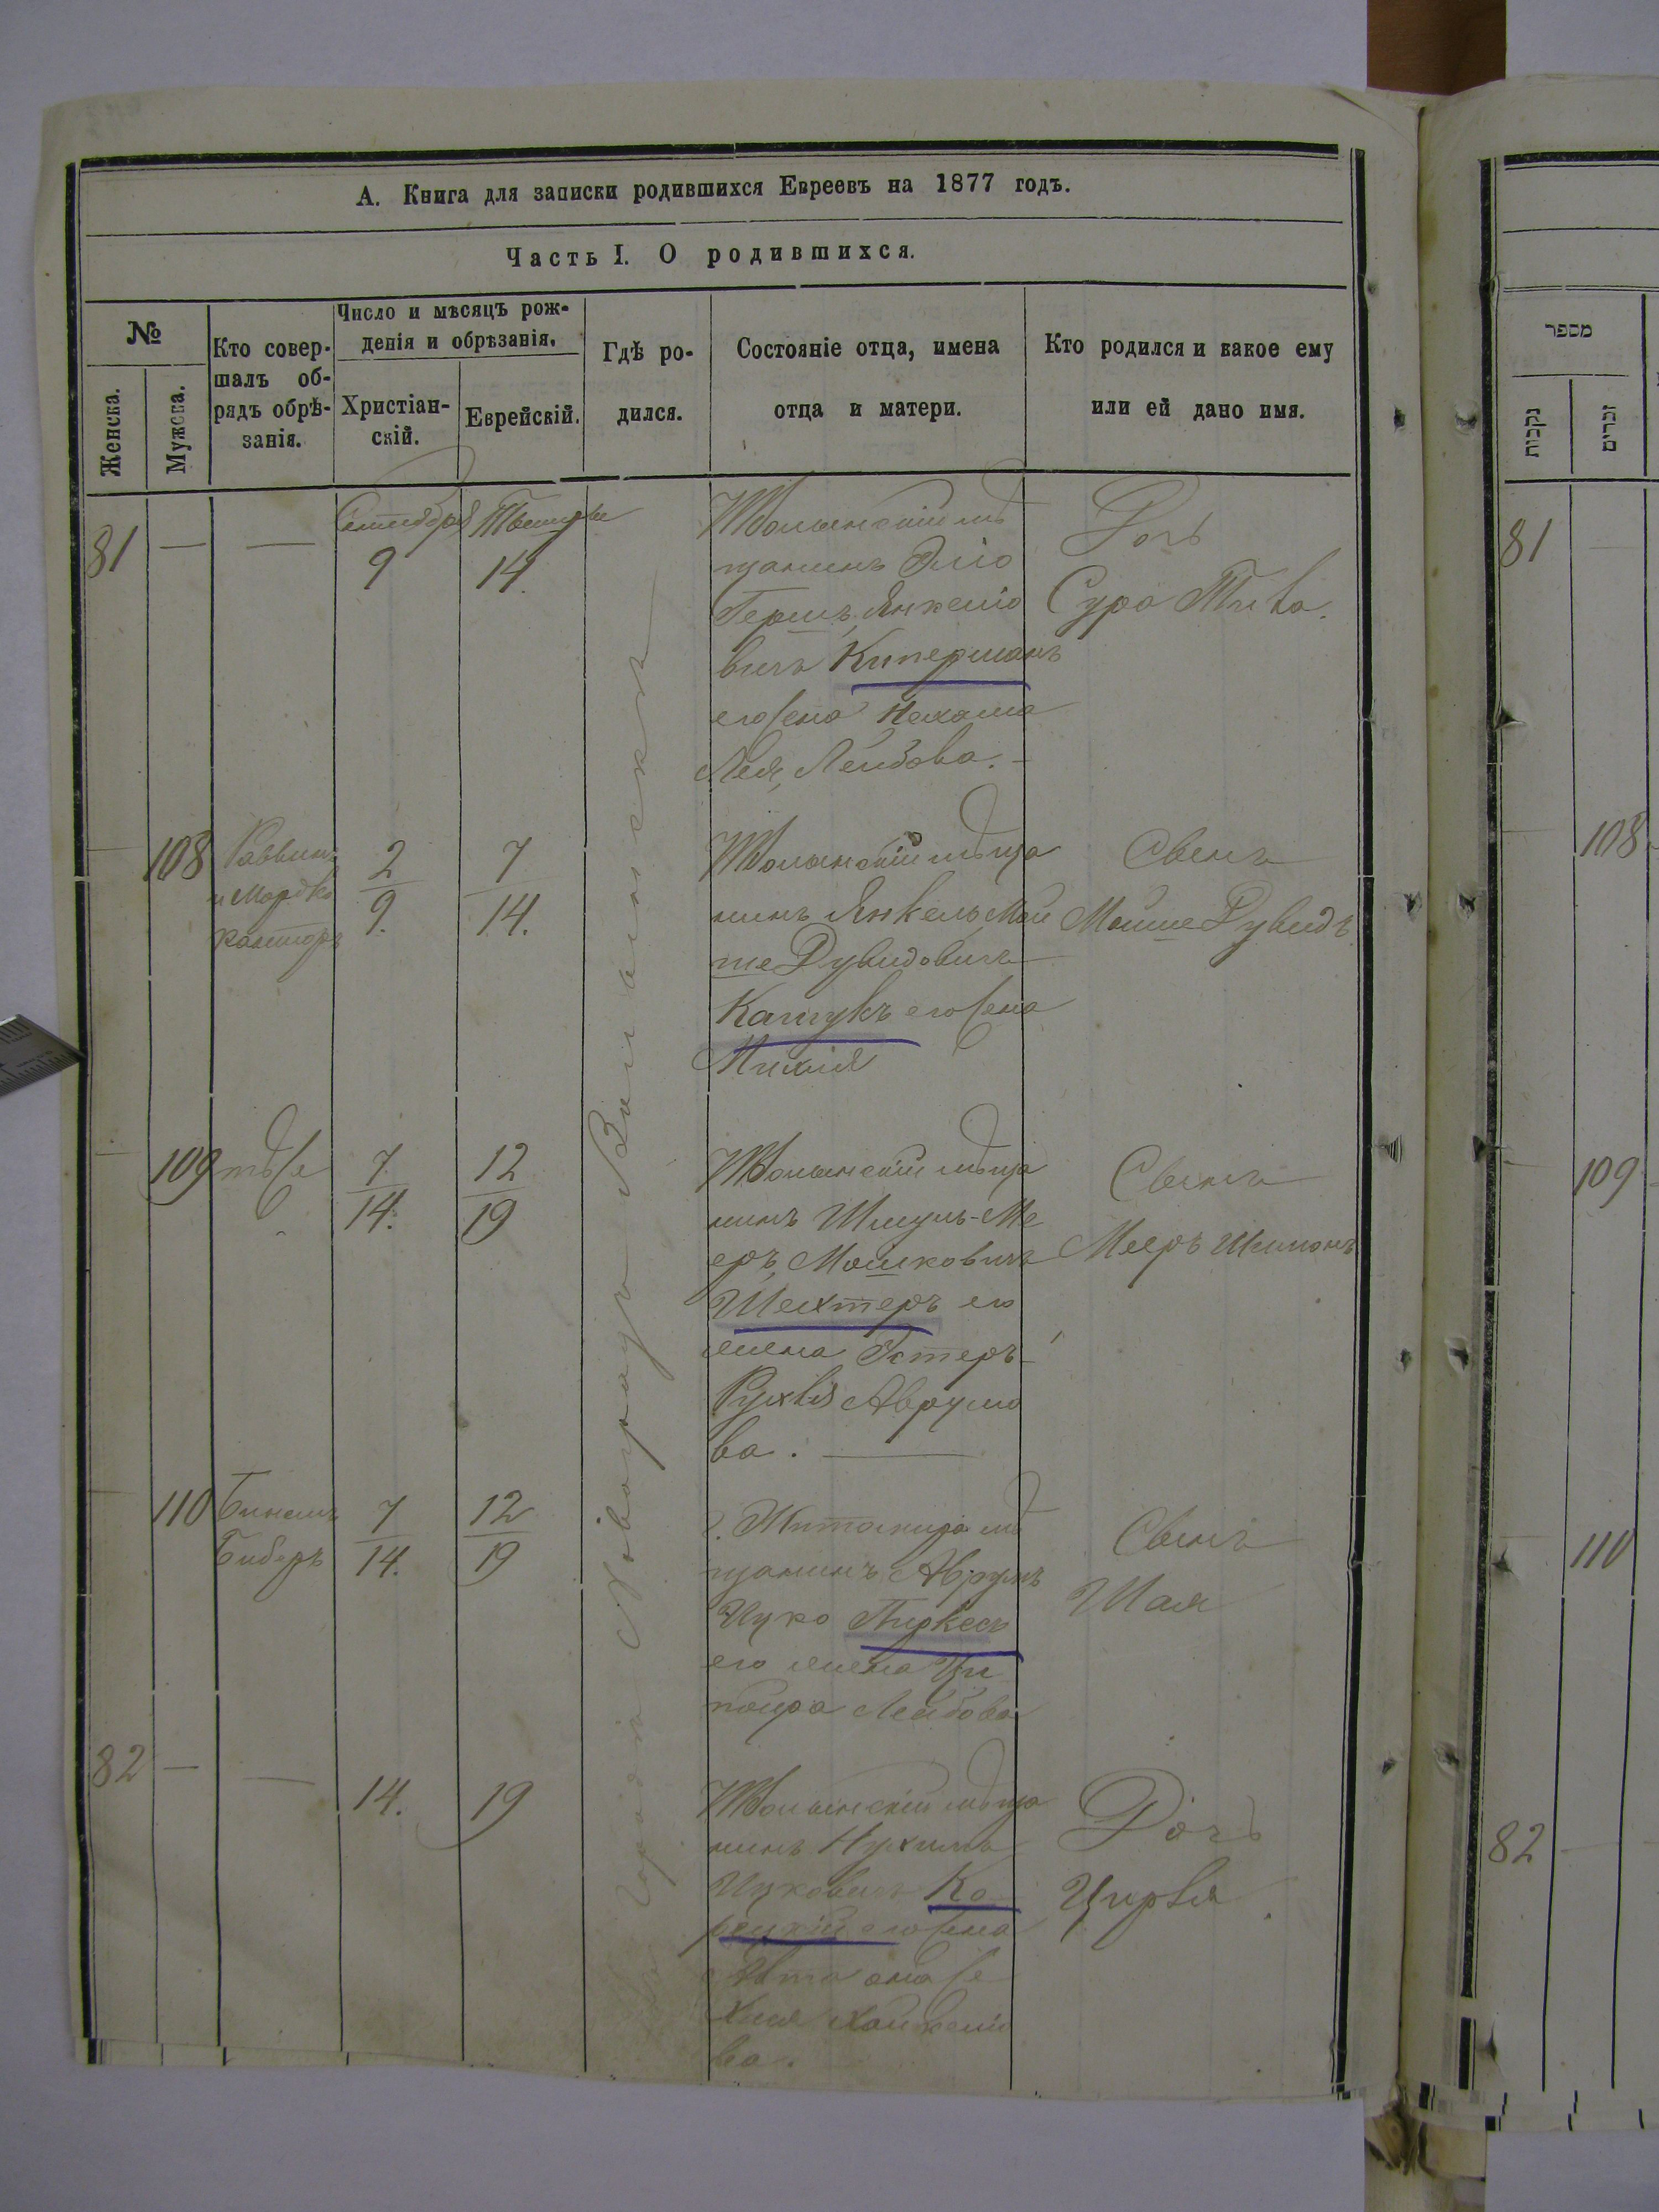 А. Книга для записки родившихся Евреевъ на 1877 годъ.
Часть I. О родившихся.
№
Женска.
Мужска.
Кто совер-
шалъ об-
рядъ обрѣ-
занія.
Число и мѣсяцъ рож-
денія и обрѣзанія.
Христіан-
скій.
Еврейскій.
Гдѣ ро-
дился.
Состояніе отца, имена
отца и матери.
Кто родился и какое ему
или ей дано имя.
Въ городѣ Новоградъ Волынскѣ
81 — —
Сентября
9
Тишри
14.
НВолынскій мѣ
щанинъ Элiо
Гершъ Янкеліо
вичъ Киперманъ
его жена Нехама
Лея, Лейбова. -
Дочь
Сура Тивa.
108
Раввинъ
и Мордко
Канторъ
2
9.
7
14.
НВолынскій мѣща
нинъ Янкель Мой
ше Дувидовичъ
Кащукъ его жена
Сынъ
Мойше Дувидъ
109
тѣже
7
14.
12
19
НВолынскій мѣща
нинъ Шмуль-Ме
еръ, Мошковичъ
Шехтеръ его
жена Эстеръ-
Рухля Аврумо
ва. —
Сынъ
Мееръ Шимонъ
110
Биберъ
7
14.
12
19
г. Житомира мѣ
щанинъ Аврумъ
Ицко Пиркесъ
его жена Ци
пойра Лейбова
Сынъ
Шая
82 — —
14.
19
НВолынскій мѣща
нинъ Нухимъ
Ицковичъ Ко
рецкій его жена
ва.
Дочь
Цирля.
מספר
נקבות
זכרים
81
108
109
110
82